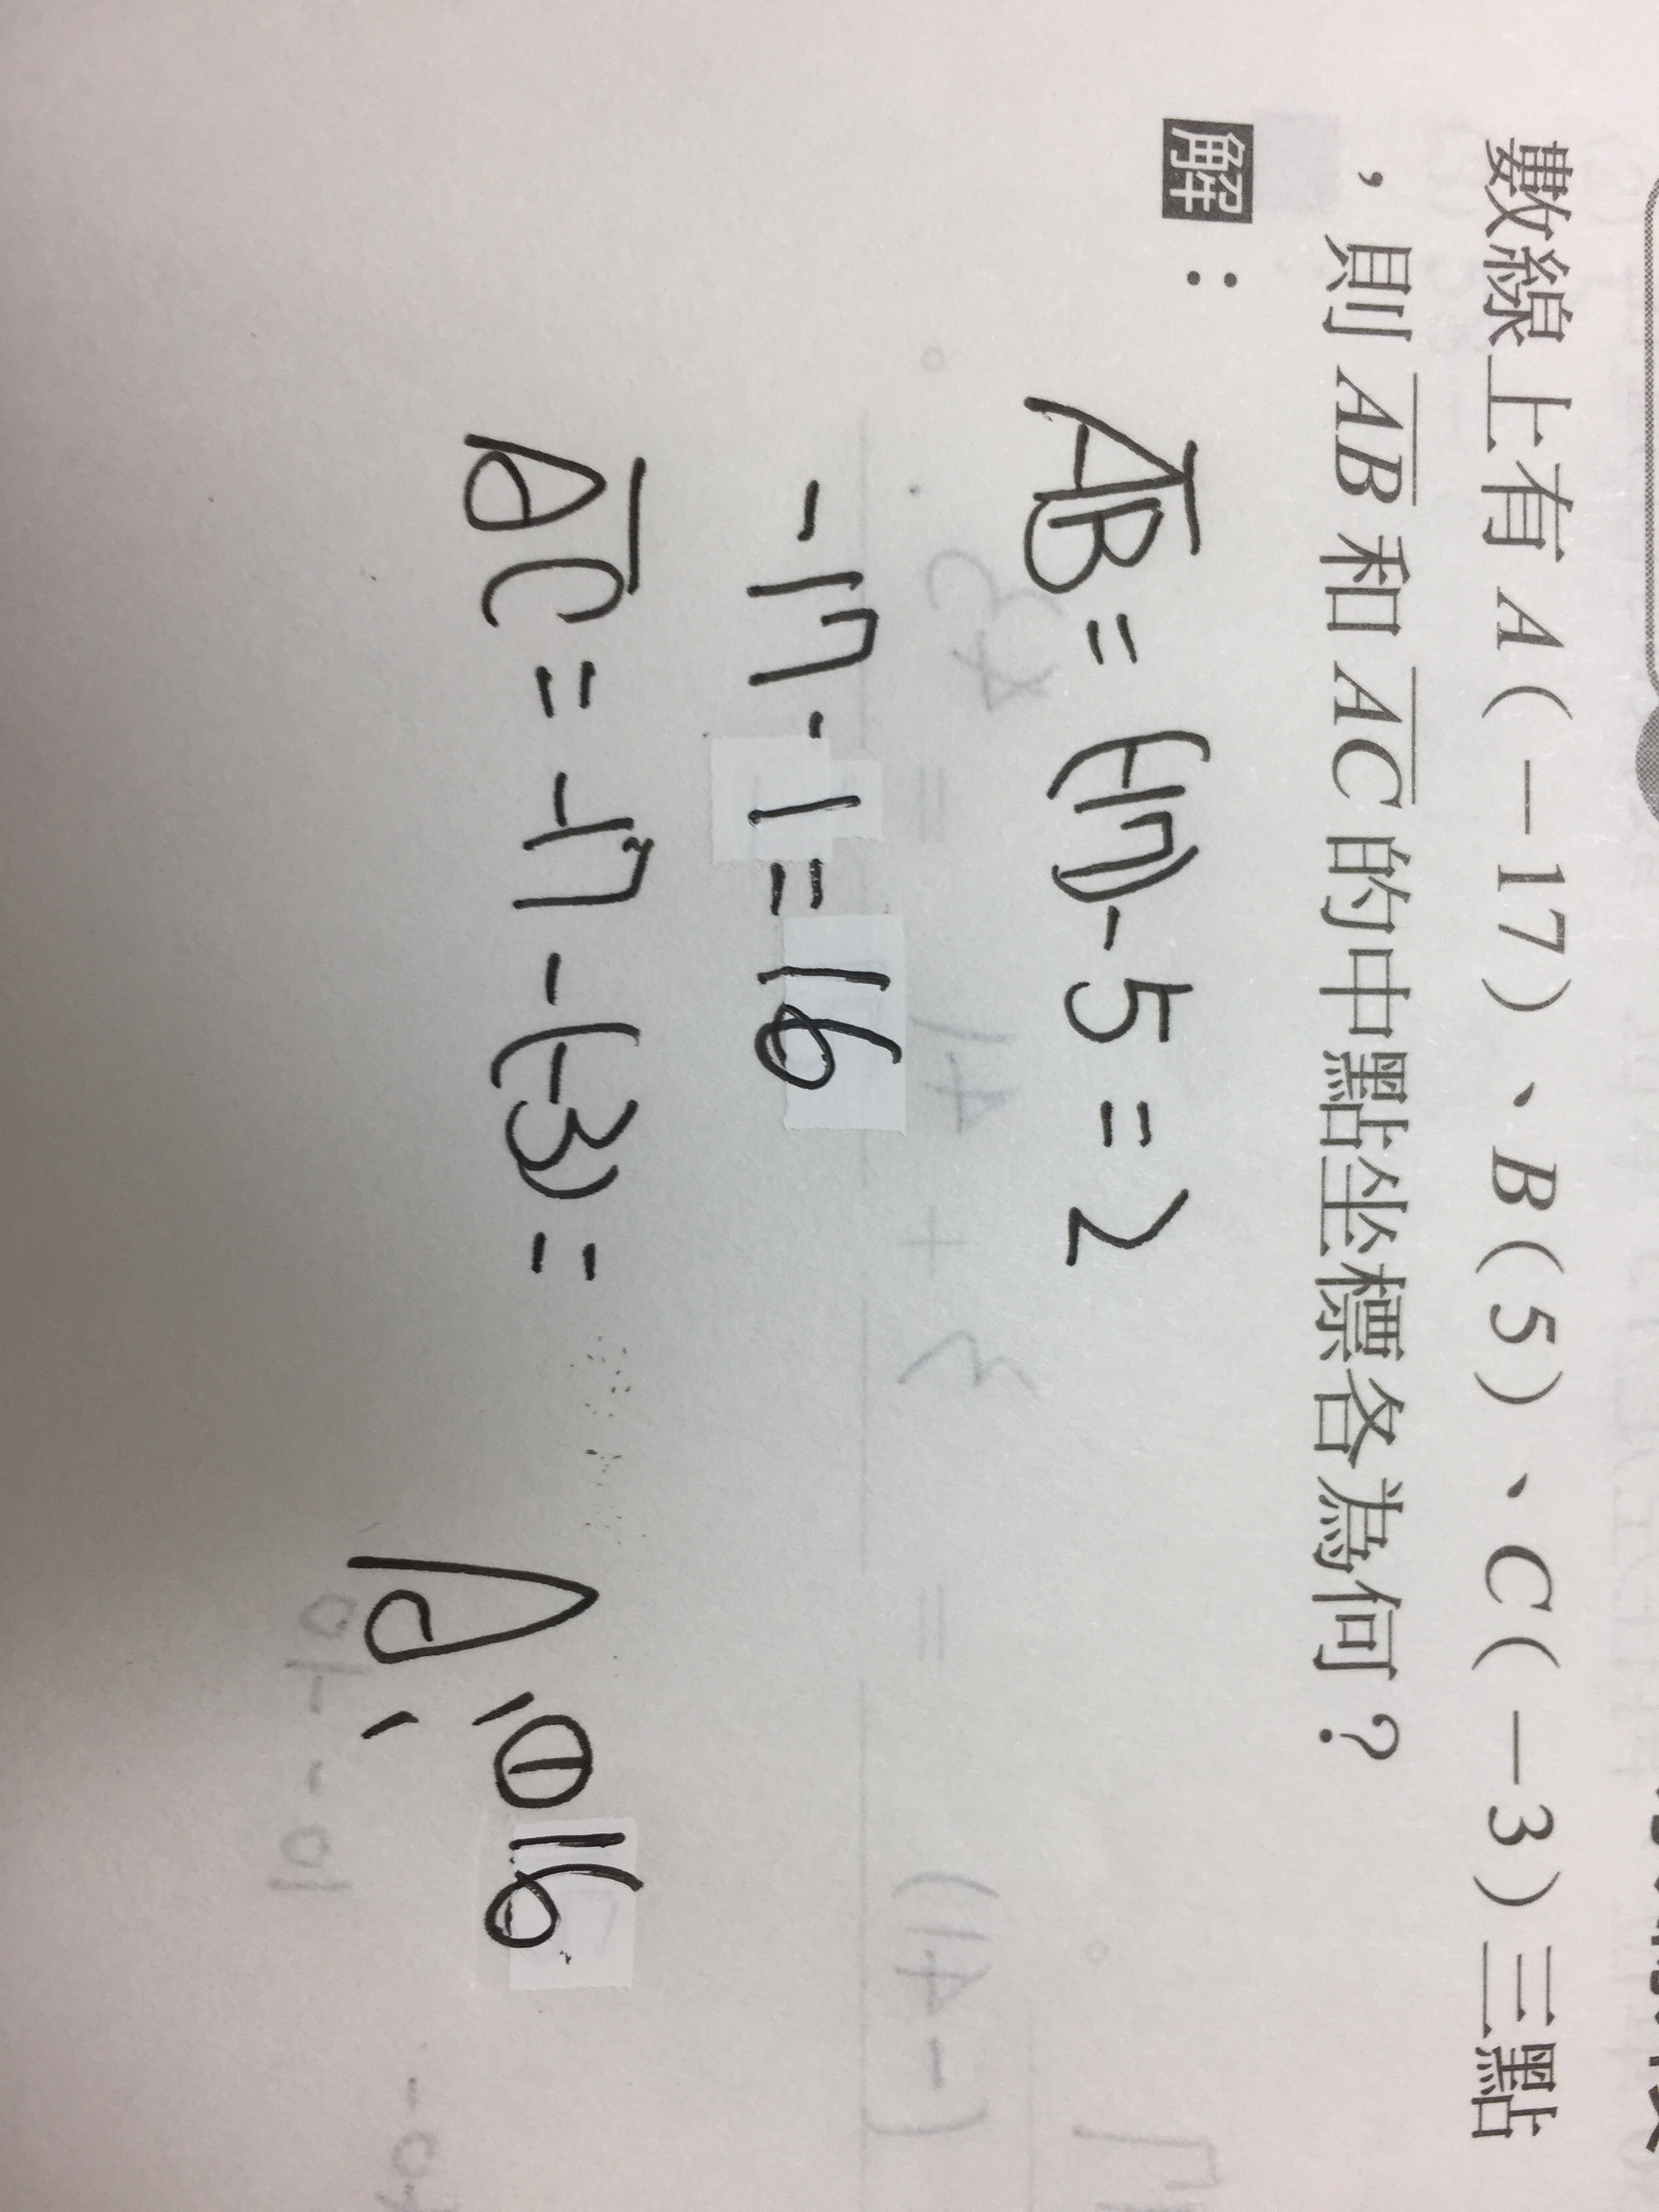 數線上有 A(-17)、B(5)、C(-3)三點
，則 AB 和 AC 的中點坐標各為何？
解：
AB = (-17)-5=2
-17-1=16
AC = -17-(-3)=
A: ①16